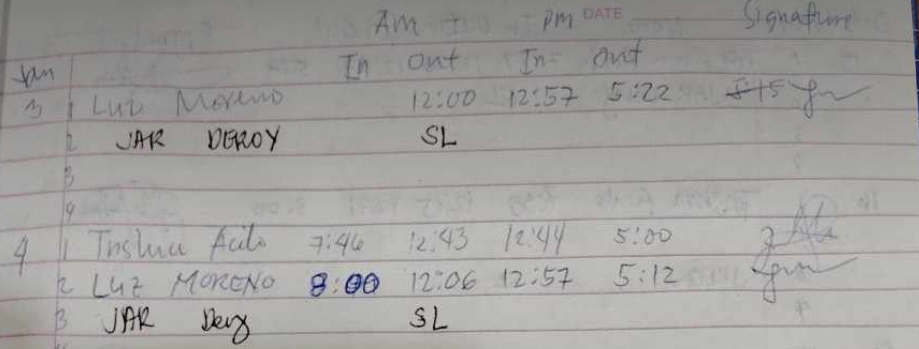 Am PM DATE Signature
Jan In Out In Out
3 1 Luz Moreno 12:00 12:57 5:22
2 JAR DEROY SL
3
4
4 1 7:46 12:43 12:44 5:00
2 Luz MORENO 8:00 12:06 12:57 5:12
3 JAR Deroy SL